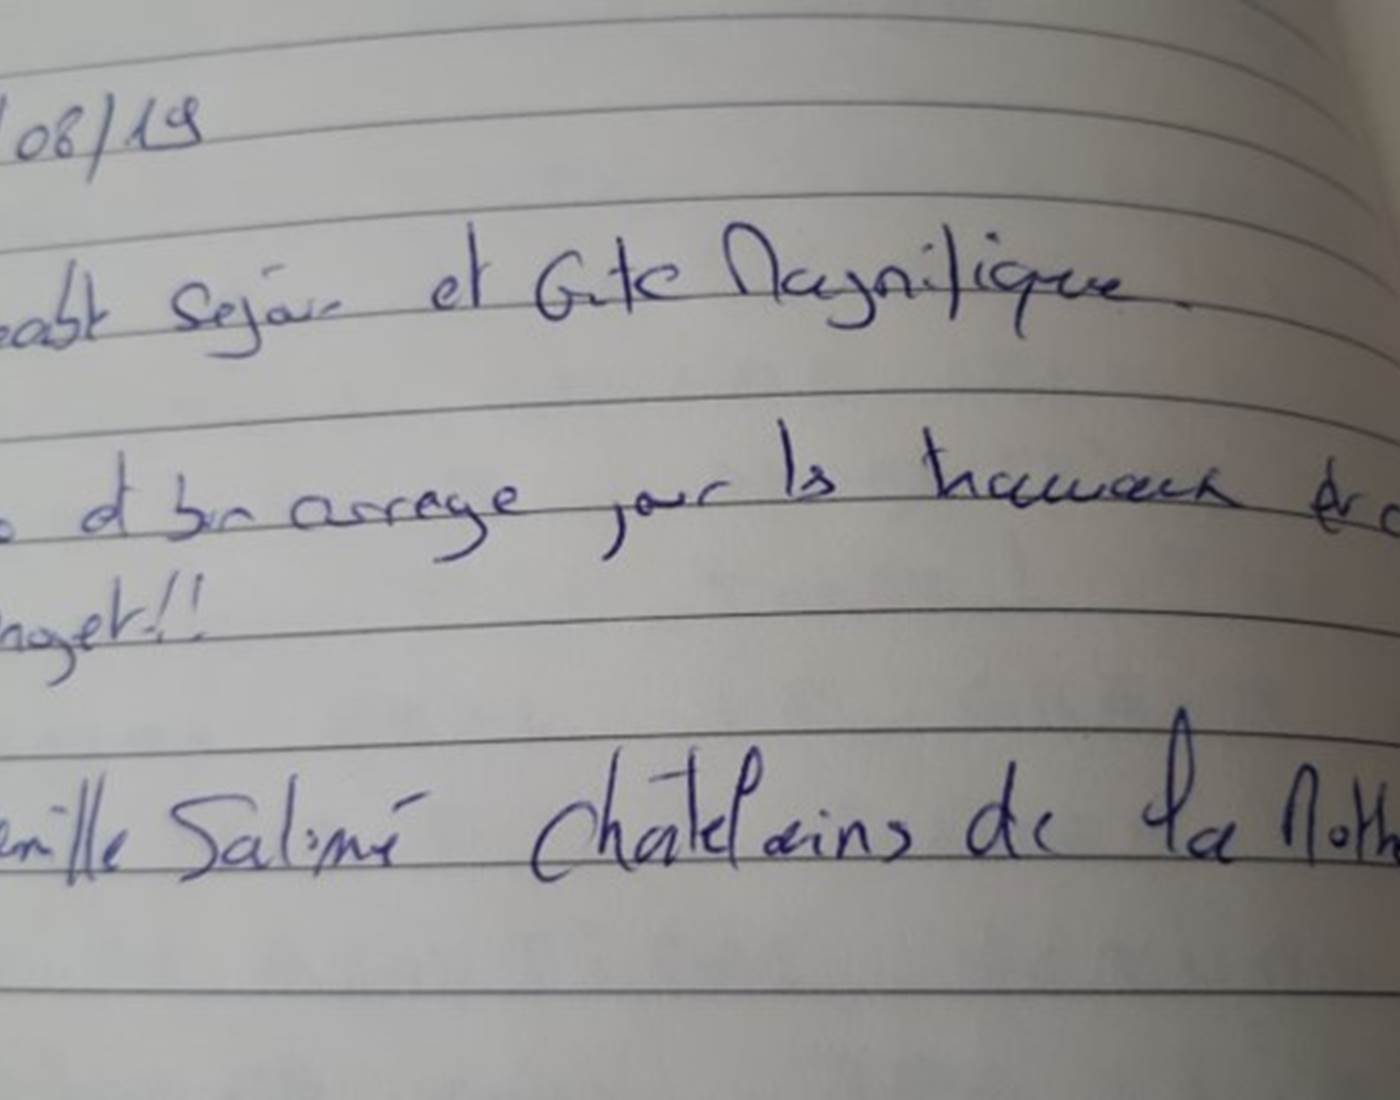 /08/19
séjour et Gite Magnifique.
et bon courage pour les travaux
!!
Salimé châtelains de la Moth